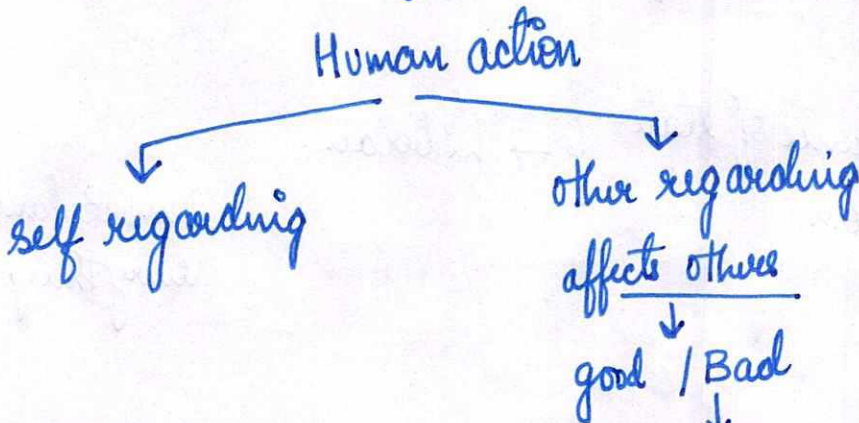 Human action
self regarding
other regarding
affects others
good / Bad